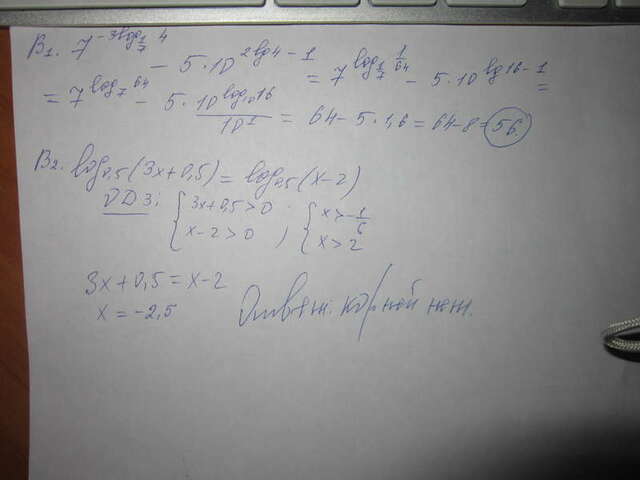 B1. 7^{-3log_{1/7} 4} - 5·10^{2lg4-1} = 7^{log_{1/7} 1/64} - 5·10^{lg16-1} =
= 7^{log_7 64} - 5·10^{log_{10}16}/10^1 = 64-5·1,6=64-8=56.
B2. log_{0,5}(3x+0,5)=log_{0,5}(x-2)
ОДЗ: { 3x+0,5>0 { x>-1/6
{ x-2>0 , { x>2
3x+0,5=x-2
x=-2,5 Ответ: корней нет.